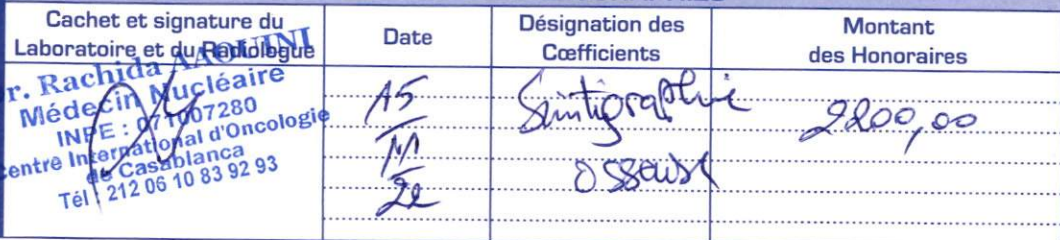 Cachet et signature du
Laboratoire et du Radiologue
Date
Désignation des
Coefficients
Montant
des Honoraires
r. Rachida AAOUINI
Médecin Nucléaire
INPE : 071007280
entre International d'Oncologie
de Casablanca
Tél : 212 06 10 83 92 93
15
11
22
Scintigraphie
osseuse
2200,00